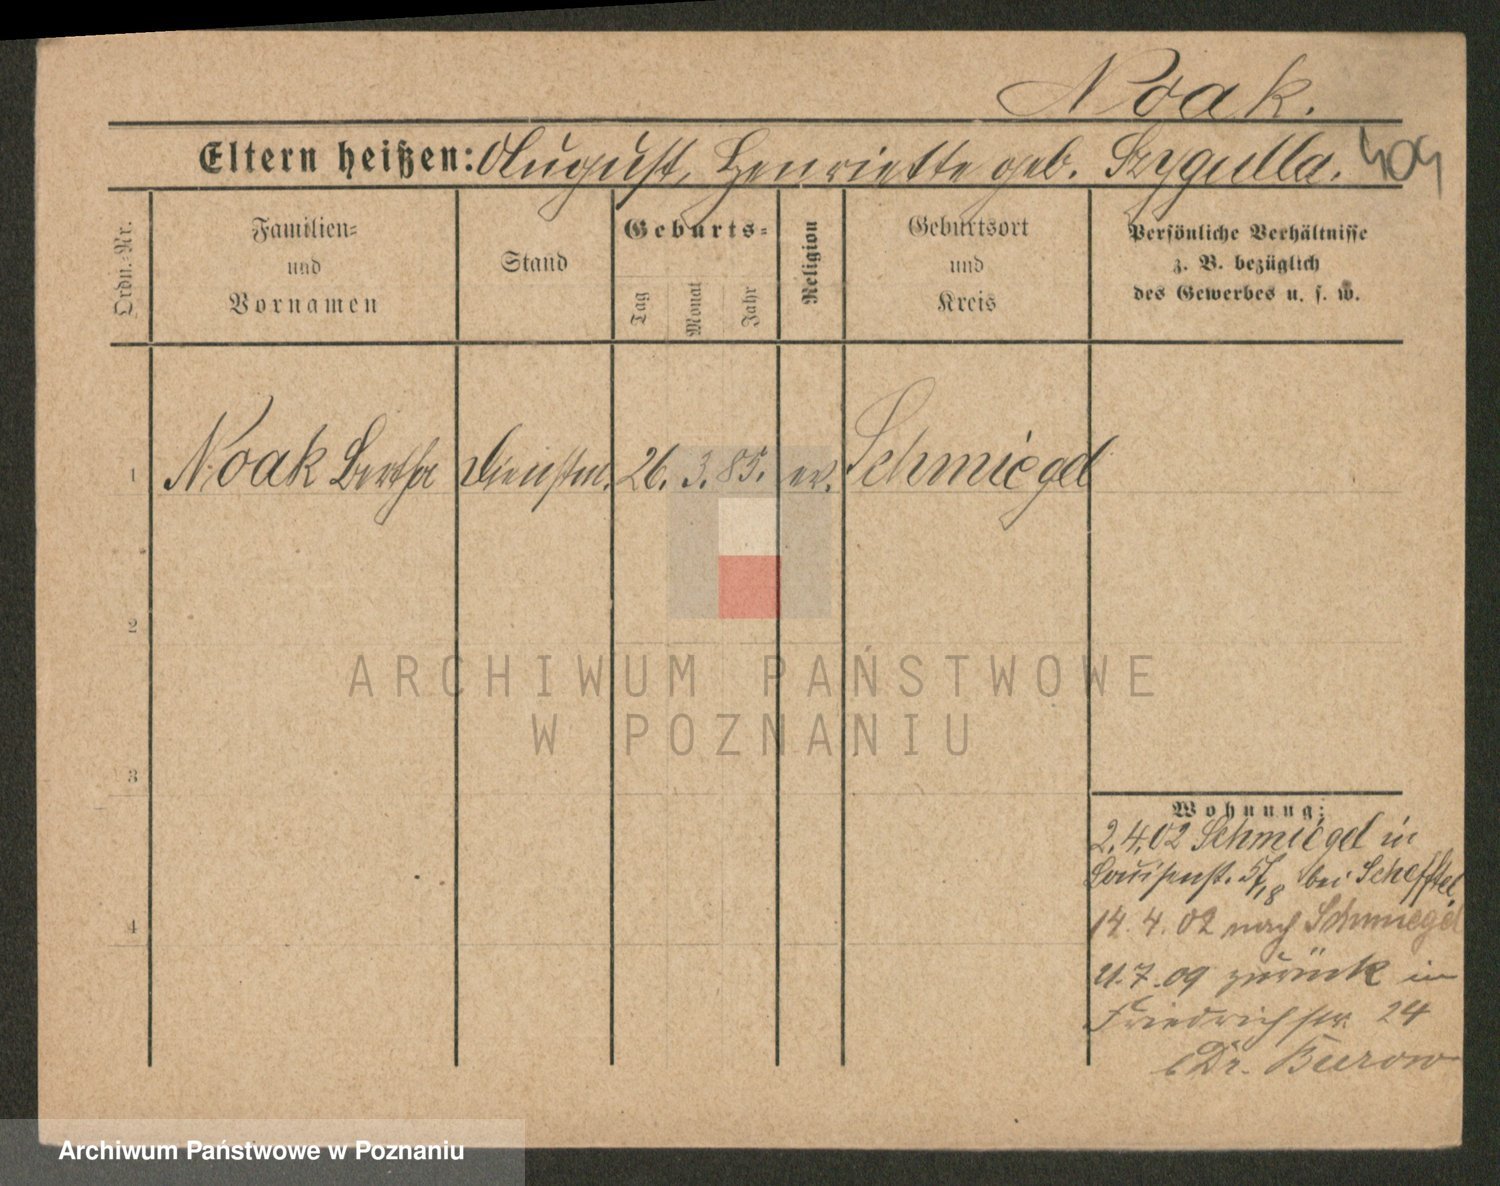 Noak.
Eltern heißen: August, Henriette geb. Szygulla. 404
Ordn.-Nr.
Familien-
und
Vornamen
Stand
Geburts-
Tag
Monat
Jahr
Religion
Geburtsort
und
Kreis
Persönliche Verhältnisse
z. B. bezüglich
des Gewerbes u. s. w.
1 Noak Bertha Dienstm. 26. 3. 85. ev. Schmiegel
2
ARCHIWUM PAŃSTWOWE
W POZNANIU
3
Wohnung:
2.4.02 Schmiegel in
Louisenst. 17/18 bei Schefftel,
4
14.4.02 nach Schmiegel
21.7.09 zurück in
Friedrichstr. 24
Dr. Burow
Archiwum Państwowe w Poznaniu